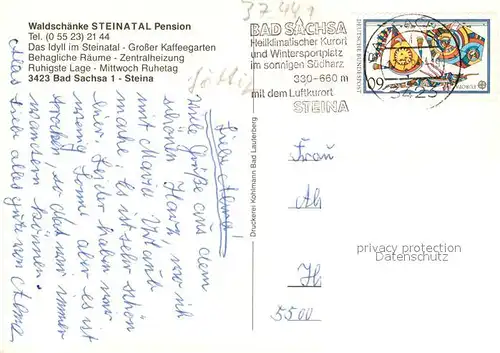 Waldschänke STEINATAL Pension
Tel. (0 55 23) 21 44
Das Idyll im Steinatal - Großer Kaffeegarten
Behagliche Räume - Zentralheizung
Ruhigste Lage - Mittwoch Ruhetag
3423 Bad Sachsa 1 - Steina
BAD SACHSA
Heilklimatischer Kurort
und Wintersportplatz
im sonnigen Südharz
330-660 m
mit dem Luftkurort
STEINA
DEUTSCHE BUNDESPOST
60
3423
Liebe
viele Grüße aus dem
schönen Harz wo ich
mit Maria Urlaub
mache. Es ist sehr schön
hier. Leider haben wir
Sonne aber es ist
trocken, so daß wir immer
wandern können.
alles gute von
Druckerei Kohlmann Bad Lauterberg
Frau
Ah
H
5500
privacy protection
Datenschutz